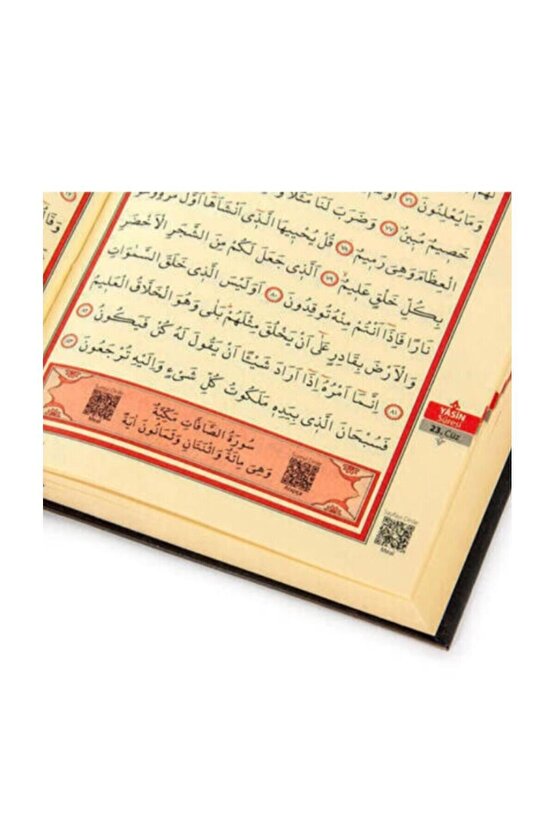 وَمَا يُعْلِنُونَ ٧٦
خَصِيمٌ مُبِينٌ ٧٧ وَضَرَبَ لَنَا مَثَلًا
الْعِظَامَ وَهِيَ رَمِيمٌ ٧٨ قُلْ يُحْيِيهَا الَّذِٓي اَنْشَاَهَٓا اَوَّلَ مَرَّةٍ وَهُوَ
بِكُلِّ خَلْقٍ عَلِيمٌ ٧٩ اَلَّذِي جَعَلَ لَكُمْ مِنَ الشَّجَرِ الْاَخْضَرِ
نَارًا فَاِذَٓا اَنْتُمْ مِنْهُ تُوقِدُونَ ٨٠ اَوَلَيْسَ الَّذِي خَلَقَ السَّمٰوَاتِ
وَالْاَرْضَ بِقَادِرٍ عَلٰٓى اَنْ يَخْلُقَ مِثْلَهُمْ بَلٰى وَهُوَ الْخَلَّاقُ الْعَلِيمُ
٨١ اِنَّمَٓا اَمْرُهُٓ اِذَٓا اَرَادَ شَيْئًا اَنْ يَقُولَ لَهُ كُنْ فَيَكُونُ ٨٢
فَسُبْحَانَ الَّذِي بِيَدِهِ مَلَكُوتُ كُلِّ شَيْءٍ وَاِلَيْهِ تُرْجَعُونَ ٨٣
سُورَةُ الصَّٓافَّاتِ مَكِّيَّةٌ
وَهِيَ مِائَةٌ وَاثْنَتَانِ وَثَمَانُونَ اٰيَةً
YÂSİN
Sûresi
23. Cüz
Sayfayı Dinle
Meal